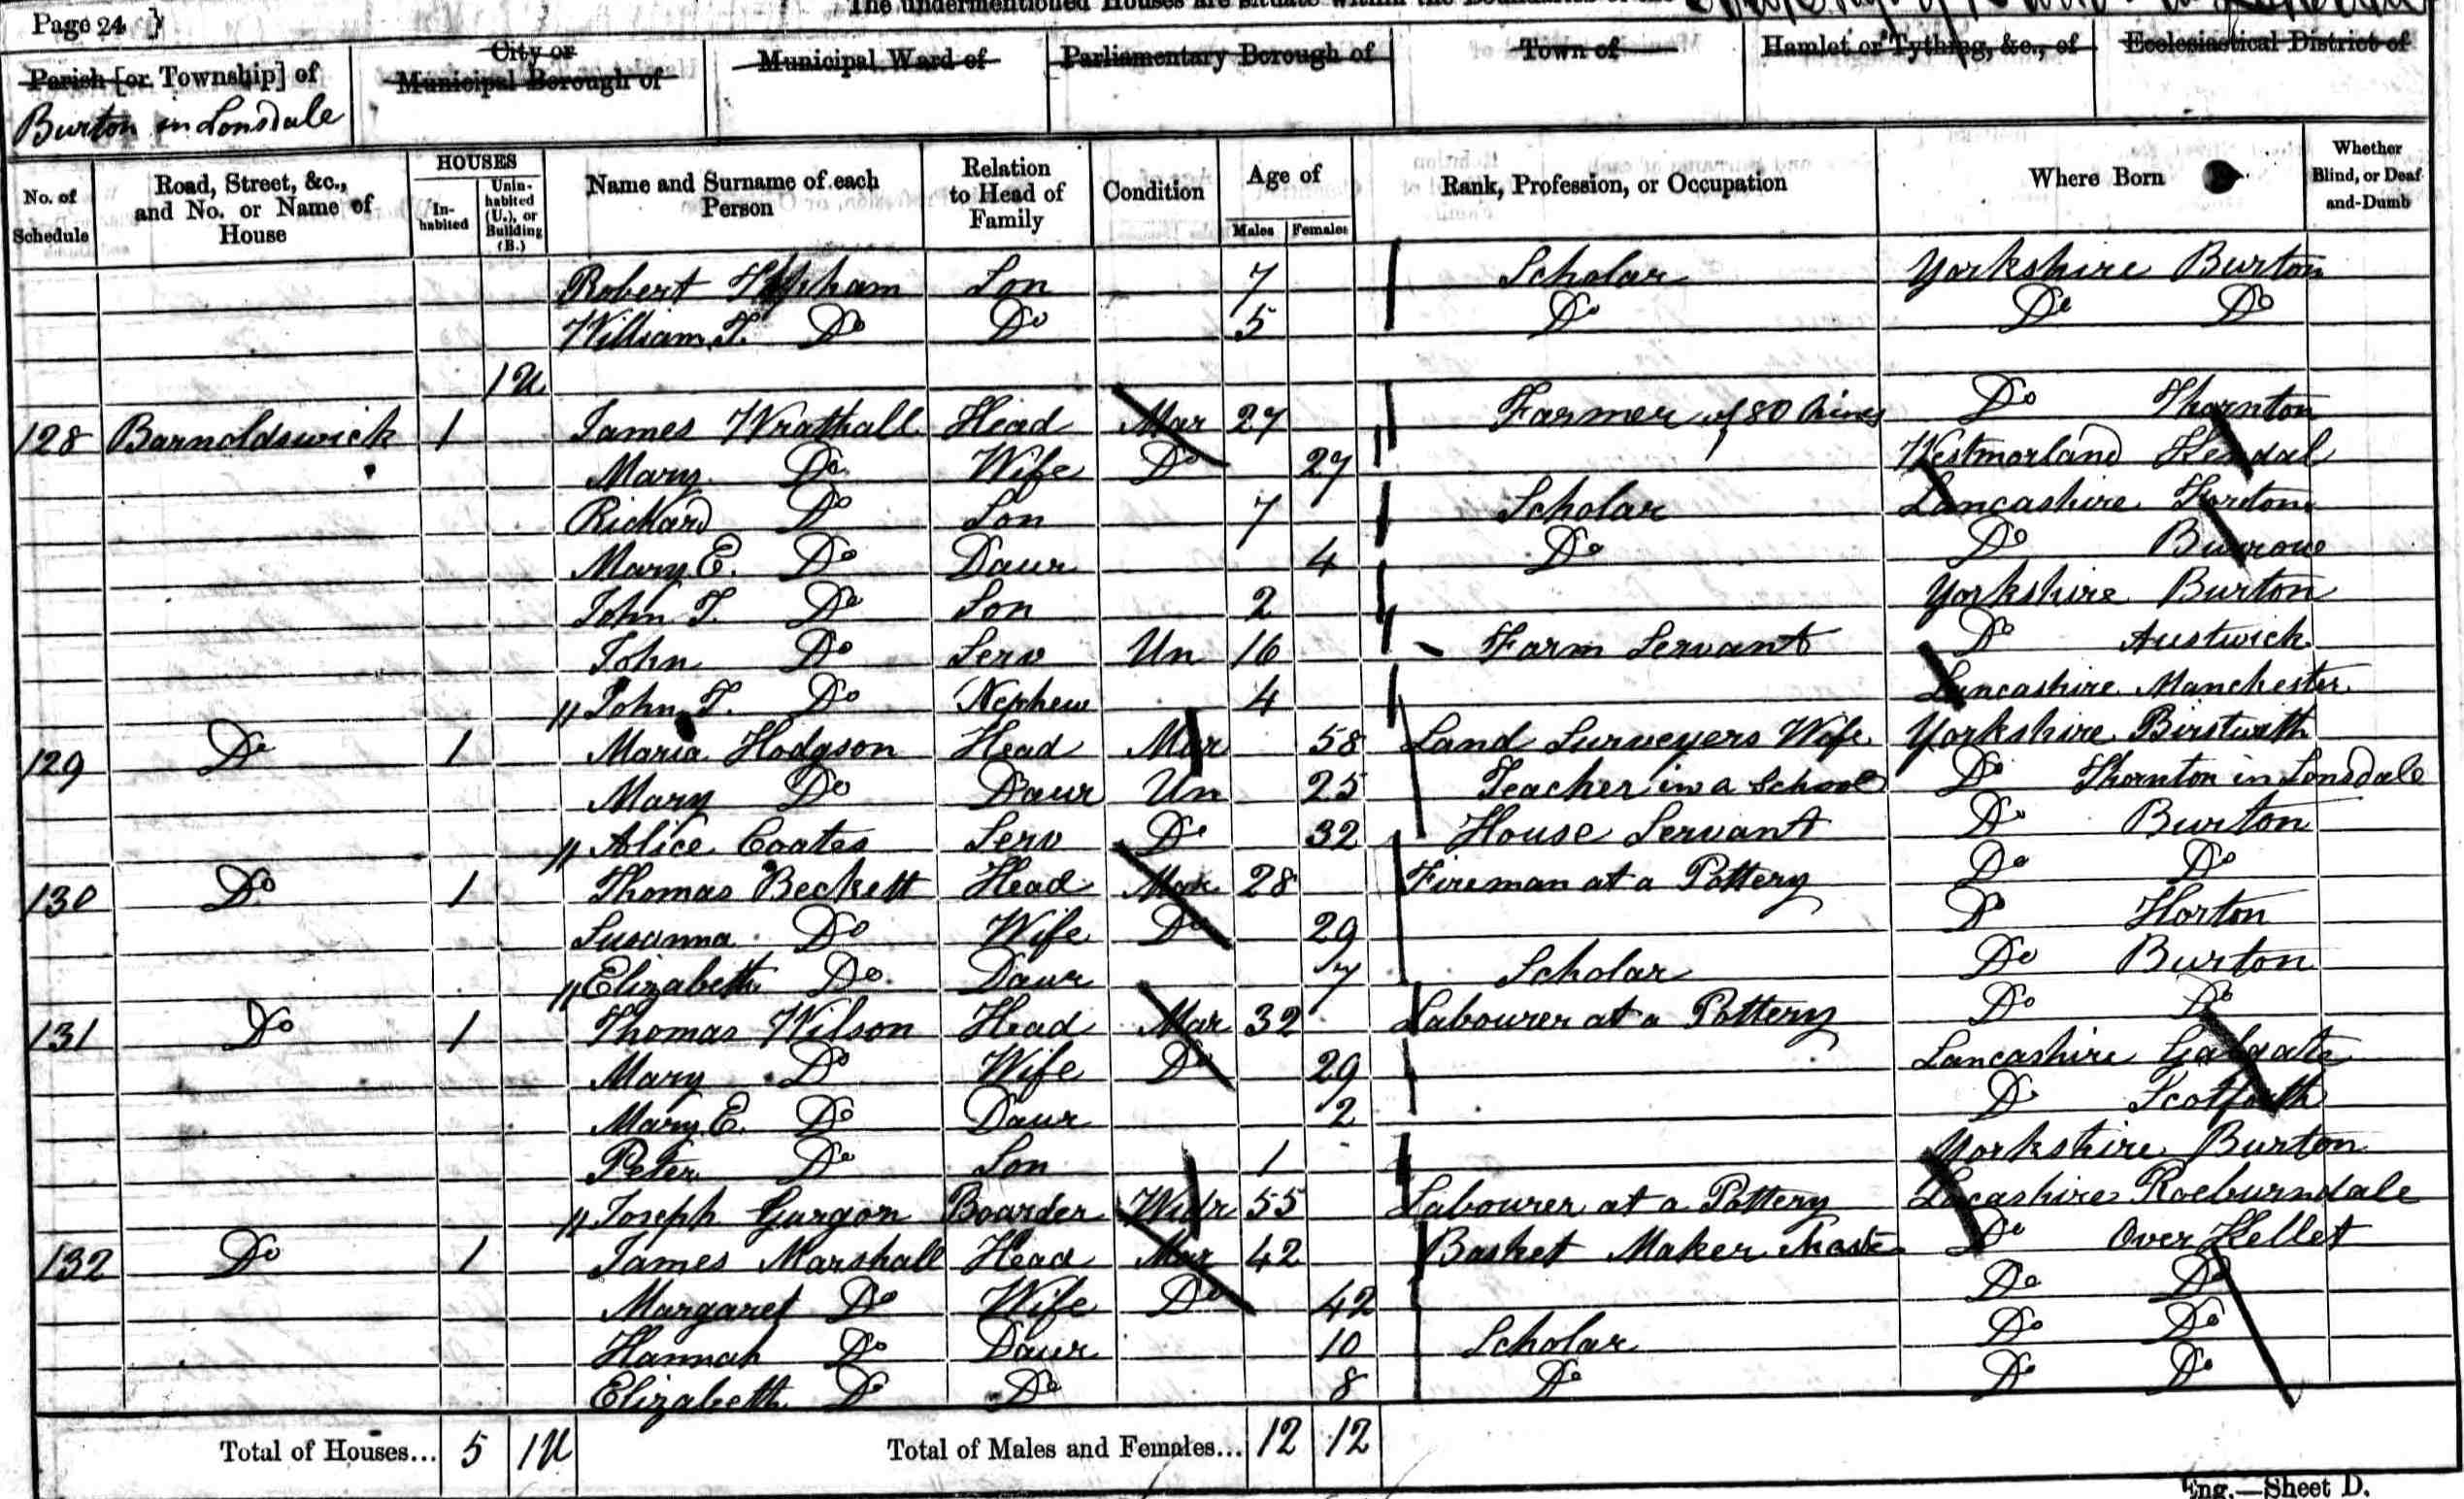 The undermentioned Houses are situate within the Boundaries of the
Page 24 }
Parish [or Township] of
Burton in Lonsdale
City or
Municipal Borough of
Municipal Ward of
Parliamentary Borough of
Town of
Hamlet or Tything, &c., of
Ecclesiastical District of
No. of Schedule
Road, Street, &c., and No. or Name of House
HOUSES
In-habited
Unin-habited (U.), or Building (B.)
Name and Surname of each Person
Relation to Head of Family
Condition
Age of
Males Females
Rank, Profession, or Occupation
Where Born
Whether Blind, or Deaf-and-Dumb
Robert Son 7 Scholar Yorkshire Burton
William T. Do Do 5 Do Do Do
1 U
128 Barnoldswick 1 James Wrathall Head Mar 27 Farmer of 80 Do Thornton
Mary Do Wife Do 27 Westmorland Kendal
Richard Do Son 7 Scholar Lancashire
Mary E. Do Daur 4 Do Do Burrow
John T. Do Son 2 Yorkshire Burton
John Do Serv Un 16 Farm Servant Do Austwick
" John T. Do Nephew 4 Lancashire Manchester
129 Do 1 Maria Hodgson Head Mar 58 Land Surveyers Wife Yorkshire Birstwith
Mary Do Daur Un 25 Teacher in a School Do Thornton in Lonsdale
" Alice Coates Serv Do 32 House Servant Do Burton
130 Do 1 Thomas Beckett Head Mar 28 Fireman at a Pottery Do Do
Susanna Do Wife Do 29 Do Horton
" Elizabeth Do Daur 7 Scholar Do Burton
131 Do 1 Thomas Wilson Head Mar 32 Labourer at a Pottery Do Do
Mary Do Wife Do 29 Lancashire Galgate
Mary E. Do Daur 2 Do Scotforth
Peter Do Son 1 Yorkshire Burton
" Joseph Gurgon Boarder Widr 55 Labourer at a Pottery Lacashire Roeburndale
132 Do 1 James Marshall Head Mar 42 Basket Maker Do Over Kellet
Margaret Do Wife Do 42 Do Do
Hannah Do Daur 10 Scholar Do Do
Elizabeth Do Do 8 Do Do Do
Total of Houses... 5 1U Total of Males and Females... 12 12
Eng.—Sheet D.